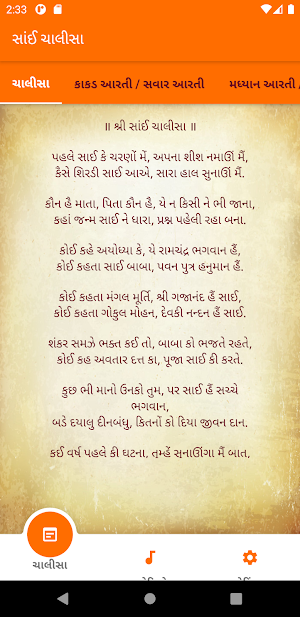 2:33
સાંઈ ચાલીસા
ચાલીસા
કાકડ આરતી / સવાર આરતી
મધ્યાન આરતી /
॥ શ્રી સાંઈ ચાલીસા ॥
પહલે સાઈ કે ચરણોં મેં, અપના શીશ નમાઊં મૈં,
કૈસે શિરડી સાઈ આએ, સારા હાલ સુનાઊં મૈં.
કૌન હૈ માતા, પિતા કૌન હૈ, યે ન કિસી ને ભી જાના,
કહાં જન્મ સાઈ ને ધારા, પ્રશ્ન પહેલી રહા બના.
કોઈ કહે અયોધ્યા કે, યે રામચંદ્ર ભગવાન હૈં,
કોઈ કહતા સાઈ બાબા, પવન પુત્ર હનુમાન હૈં.
કોઈ કહતા મંગલ મૂર્તિ, શ્રી ગજાનંદ હૈં સાઈ,
કોઈ કહતા ગોકુલ મોહન, દેવકી નન્દન હૈં સાઈ.
શંકર સમઝે ભક્ત કઈ તો, બાબા કો ભજતે રહતે,
કોઈ કહ અવતાર દત્ત કા, પૂજા સાઈ કી કરતે.
કુછ ભી માનો ઉનકો તુમ, પર સાઈ હૈં સચ્ચે
ભગવાન,
બડે દયાલુ દીનબંધુ, કિતનોં કો દિયા જીવન દાન.
કઈ વર્ષ પહલે કી ઘટના, તુમ્હેં સુનાઊંગા મૈં બાત.
ચાલીસા